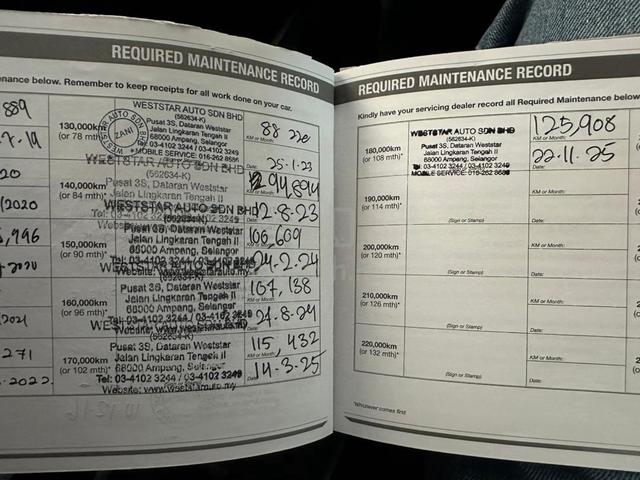 REQUIRED MAINTENANCE RECORD
nance below. Remember to keep receipts for all work done on your car.
889
7.19
20
/2020
,996
271
.2022
130,000km
(or 78 mth)*
WESTSTAR AUTO SDN BHD
(562634-K)
Pusat 3S, Dataran Weststar
Jalan Lingkaran Tengah II
68000 Ampang, Selangor
Tel: 03-4102 3244 / 03-4102 3249
MOBILE SERVICE: 016-262 8686
ZANI
KM or Month:
25-1-23
140,000km
(or 84 mth)*
WESTSTAR AUTO SDN BHD
(562634-K)
Pusat 3S, Dataran Weststar
94,894
12-8-23
150,000km
(or 90 mth)*
WESTSTAR AUTO SDN BHD
(562634-K)
Pusat 3S, Dataran Weststar
Jalan Lingkaran Tengah II
68000 Ampang, Selangor
Tel: 03-4102 3244 / 03-4102 3249
100,609
24-2-24
160,000km
(or 96 mth)*
Pusat 3S, Dataran Weststar
Jalan Lingkaran Tengah II
68000 Ampang, Selangor
107,138
24-8-24
170,000km
(or 102 mth)*
(562634-K)
Pusat 3S, Dataran Weststar
Jalan Lingkaran Tengah II
68000 Ampang, Selangor
Tel: 03-4102 3244 / 03-4102 3249
115,432
14-3-25
REQUIRED MAINTENANCE RECORD
Kindly have your servicing dealer record all Required Maintenance below
180,000km
(or 108 mth)*
WESTSTAR AUTO SDN BHD
(562634-K)
Pusat 3S, Dataran Weststar
Jalan Lingkaran Tengah II
68000 Ampang, Selangor
Tel: 03-4102 3244 / 03-4102 3249
MOBILE SERVICE: 016-262 8686
125,908
KM or Month:
22-11-25
Date:
190,000km
(or 114 mth)*
(Sign or Stamp)
KM or Month:
Date:
200,000km
(or 120 mth)*
(Sign or Stamp)
KM or Month:
Date:
210,000km
(or 126 mth)*
(Sign or Stamp)
KM or Month:
Date:
220,000km
(or 132 mth)*
(Sign or Stamp)
KM or Month:
Date:
*Whichever comes first